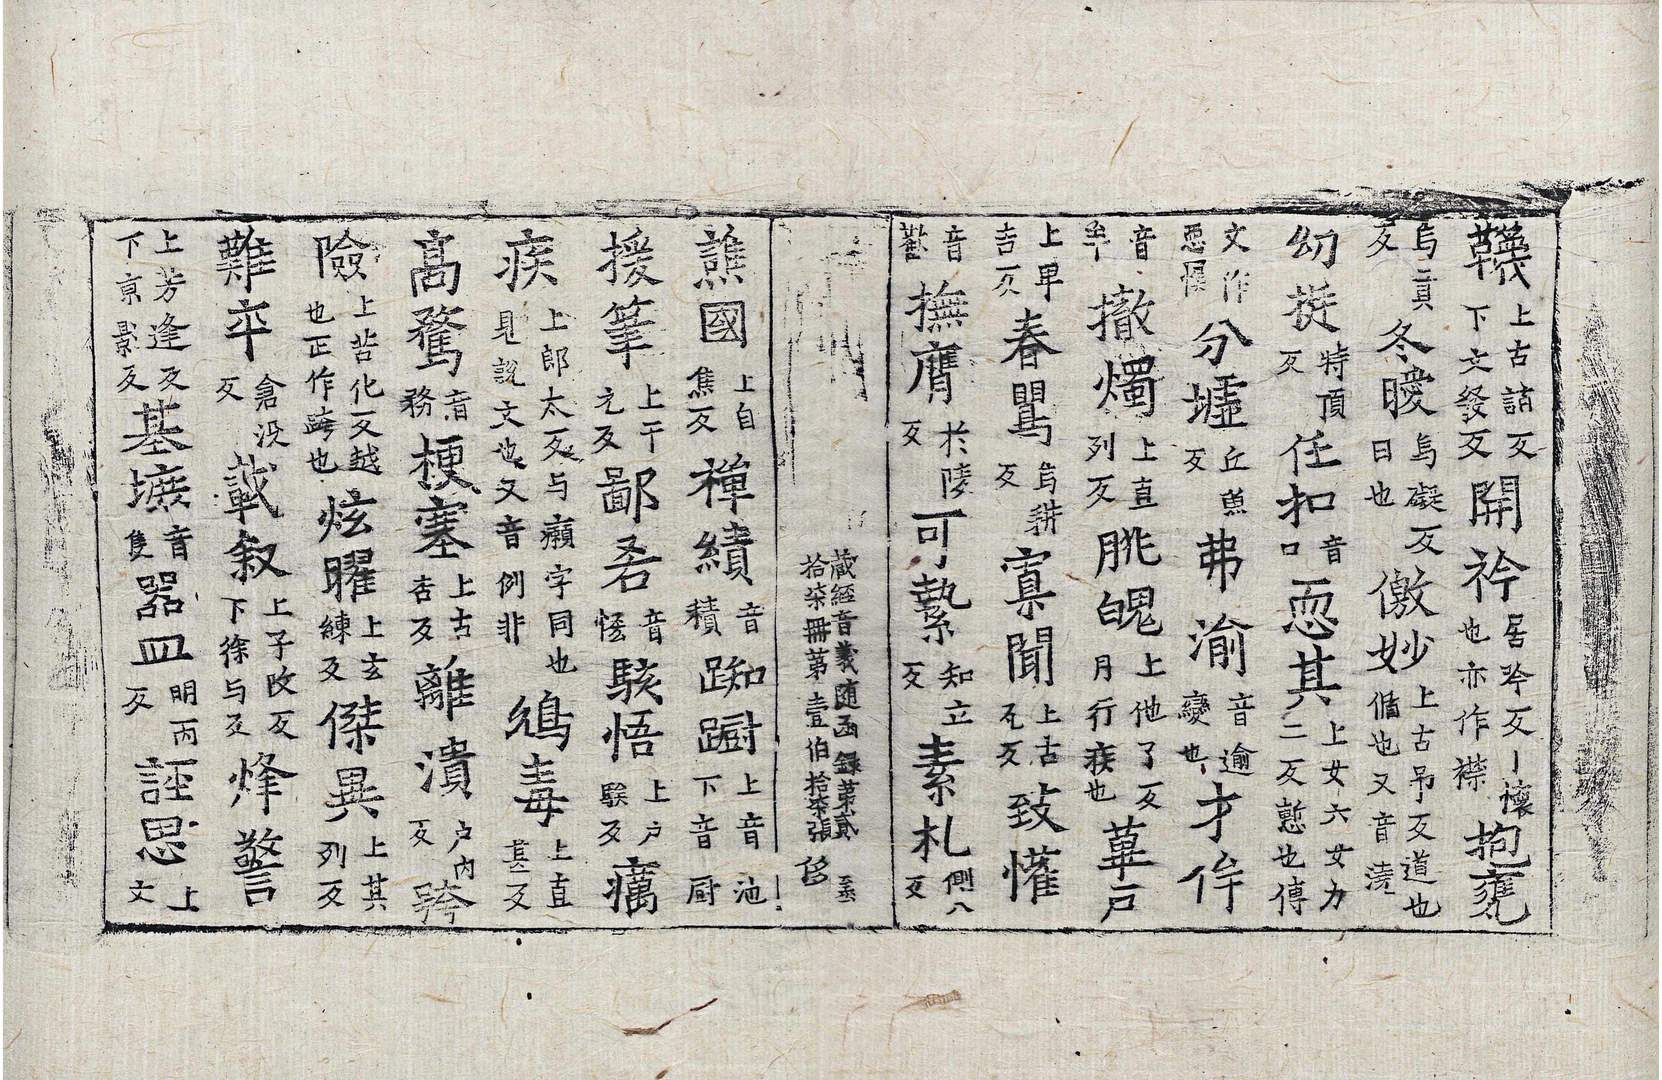 韈上古誚反下文發反開衿居吟反丨懷也亦作襟抱甕
烏貢反冬曖烏礙反日也儌妙上古吊反道也循也又音澆
幼挺特頂反任扣音口恧其上女六女力二反慙也傳
文作恧懼分墟丘魚反弗渝音逾變也才侔
音牟撤燭上直列反朓魄上他了反月行疾也蓽戶
上卑吉反春鷪烏耕反寡聞上古瓦反致懽
音歡撫膺於陵反可縶知立反素札側八反
藏經音義随函録苐貳拾柒冊苐壹伯拾柒張
譙國上自焦反禫績音積踟躕上音池下音厨
援筆上干元反鄙吝音悋駭悟上户騃反癘
疾上郎太反与癩字同也見說文也又音例非鴆毒上直甚反
髙騖音務梗塞上古杏反離潰户内反跨
險上苦化反越也正作跨也炫曜上玄練反傑異上其列反
難卒倉没反載叙上子改反下徐与反烽警
上芳逢反下京景反基墌音隻器皿明丙反誣罔上文